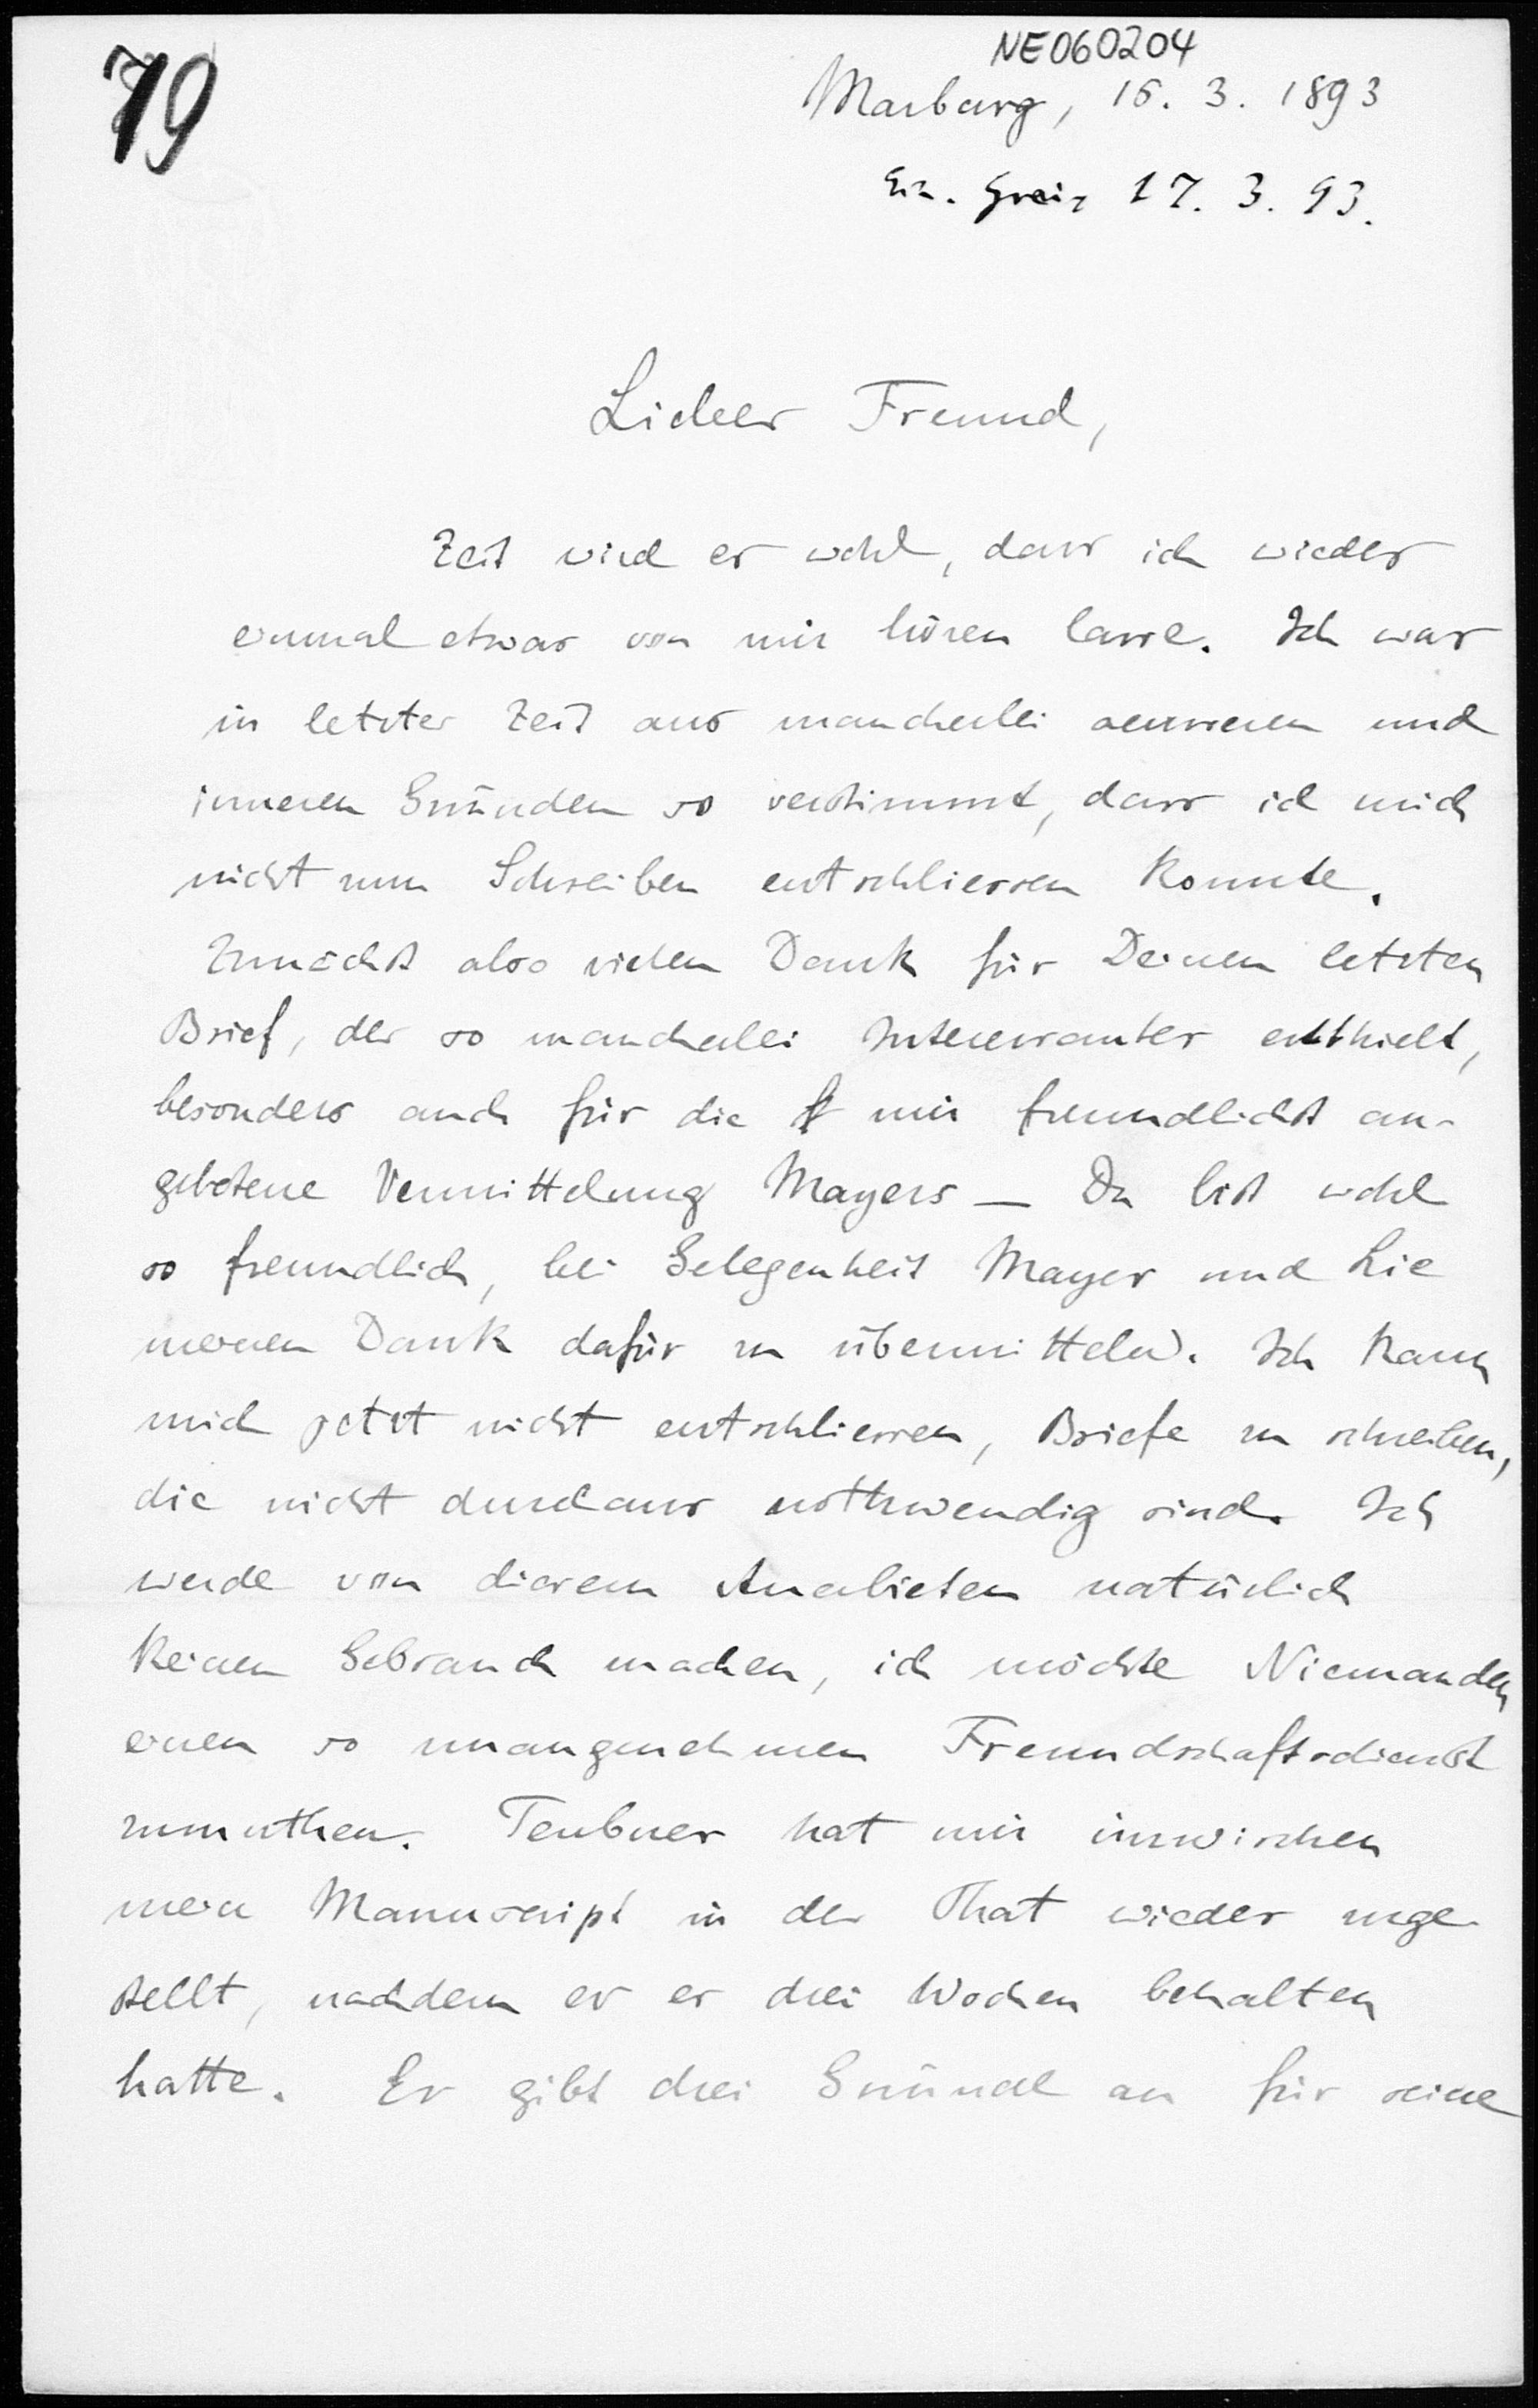 79
NE060204
Marburg, 16. 3. 1893
Ein. Greiz 17. 3. 93.
Lieber Freund,
Zeit wird es wohl, dass ich wieder
einmal etwas von mir hören lasse. Ich war
in letzter Zeit aus mancherlei aeusseren und
inneren Gründen so verstimmt, dass ich mich
nicht zum Schreiben entschliessen konnte.
Zunächst also vielen Dank für Deinen letzten
Brief, der so mancherlei Interessantes enthielt,
besonders auch für die mir freundlichst an-
gebotene Vermittelung Mayers — Du bist wohl
so freundlich, bei Gelegenheit Mayer und Lie
meinen Dank dafür zu übermitteln. Ich kann
mich jetzt nicht entschliessen, Briefe zu schreiben,
die nicht durchaus nothwendig sind. Ich
werde von diesem Anerbieten natürlich
keinen Gebrauch machen, ich möchte Niemanden
einen so unangenehmen Freundschaftsdienst
zumuthen. Teubner hat mir inzwischen
mein Manuscript in der That wieder zuge-
stellt, nachdem er es drei Wochen behalten
hatte. Er gibt drei Gründe an für seine